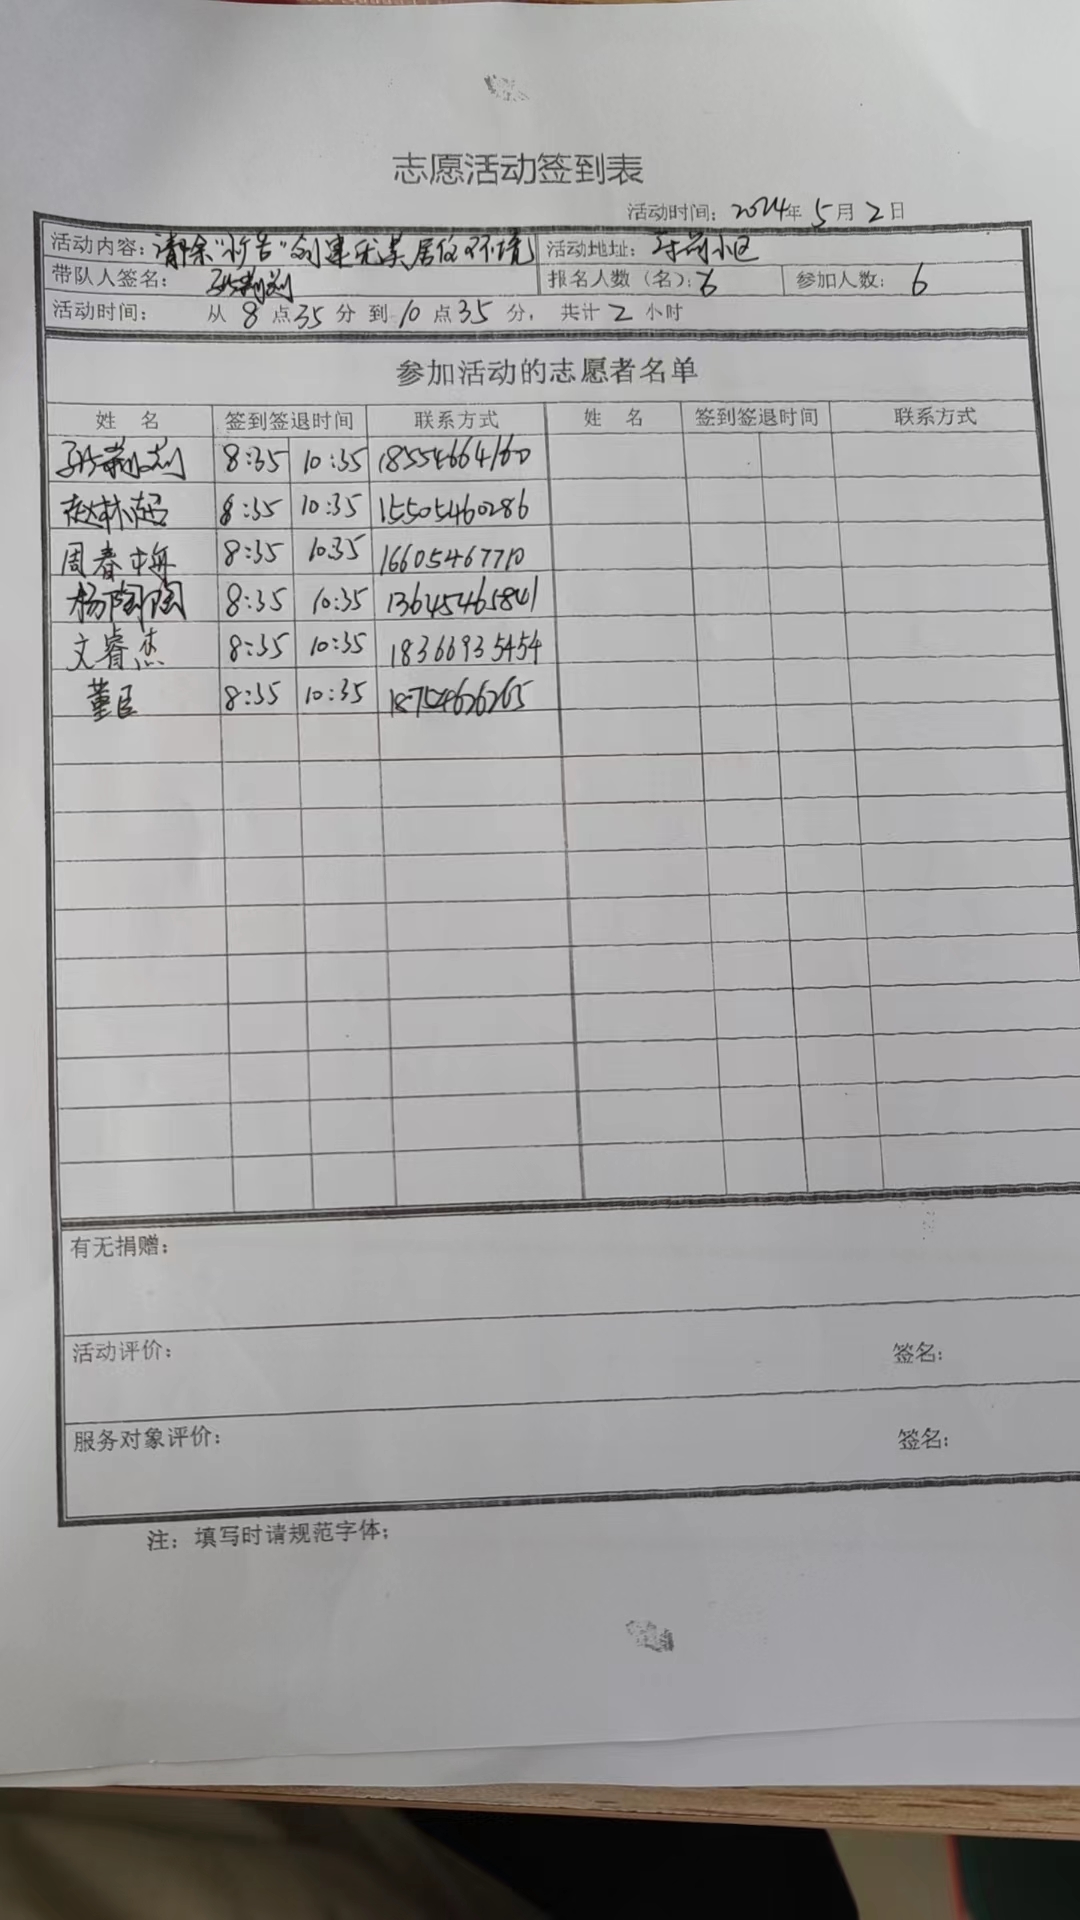 志愿活动签到表
活动时间：2024年5月2日
活动内容：清除"小广告"创建优美居住环境 活动地址：小区
带队人签名： 报名人数（名）：6 参加人数：6
活动时间： 从8点35分到10点35分，共计2小时
参加活动的志愿者名单
姓 名 签到签退时间 联系方式 姓 名 签到签退时间 联系方式
8:35 10:35 18554664160
8:35 10:35 15505460286
周春梅 8:35 1035 16605467710
杨陶陶 8:35 10:35 13645465841
文睿杰 8:35 10:35 18366935454
董臣 8:35 10:35 18754626265
有无捐赠：
活动评价： 签名：
服务对象评价： 签名：
注：填写时请规范字体；